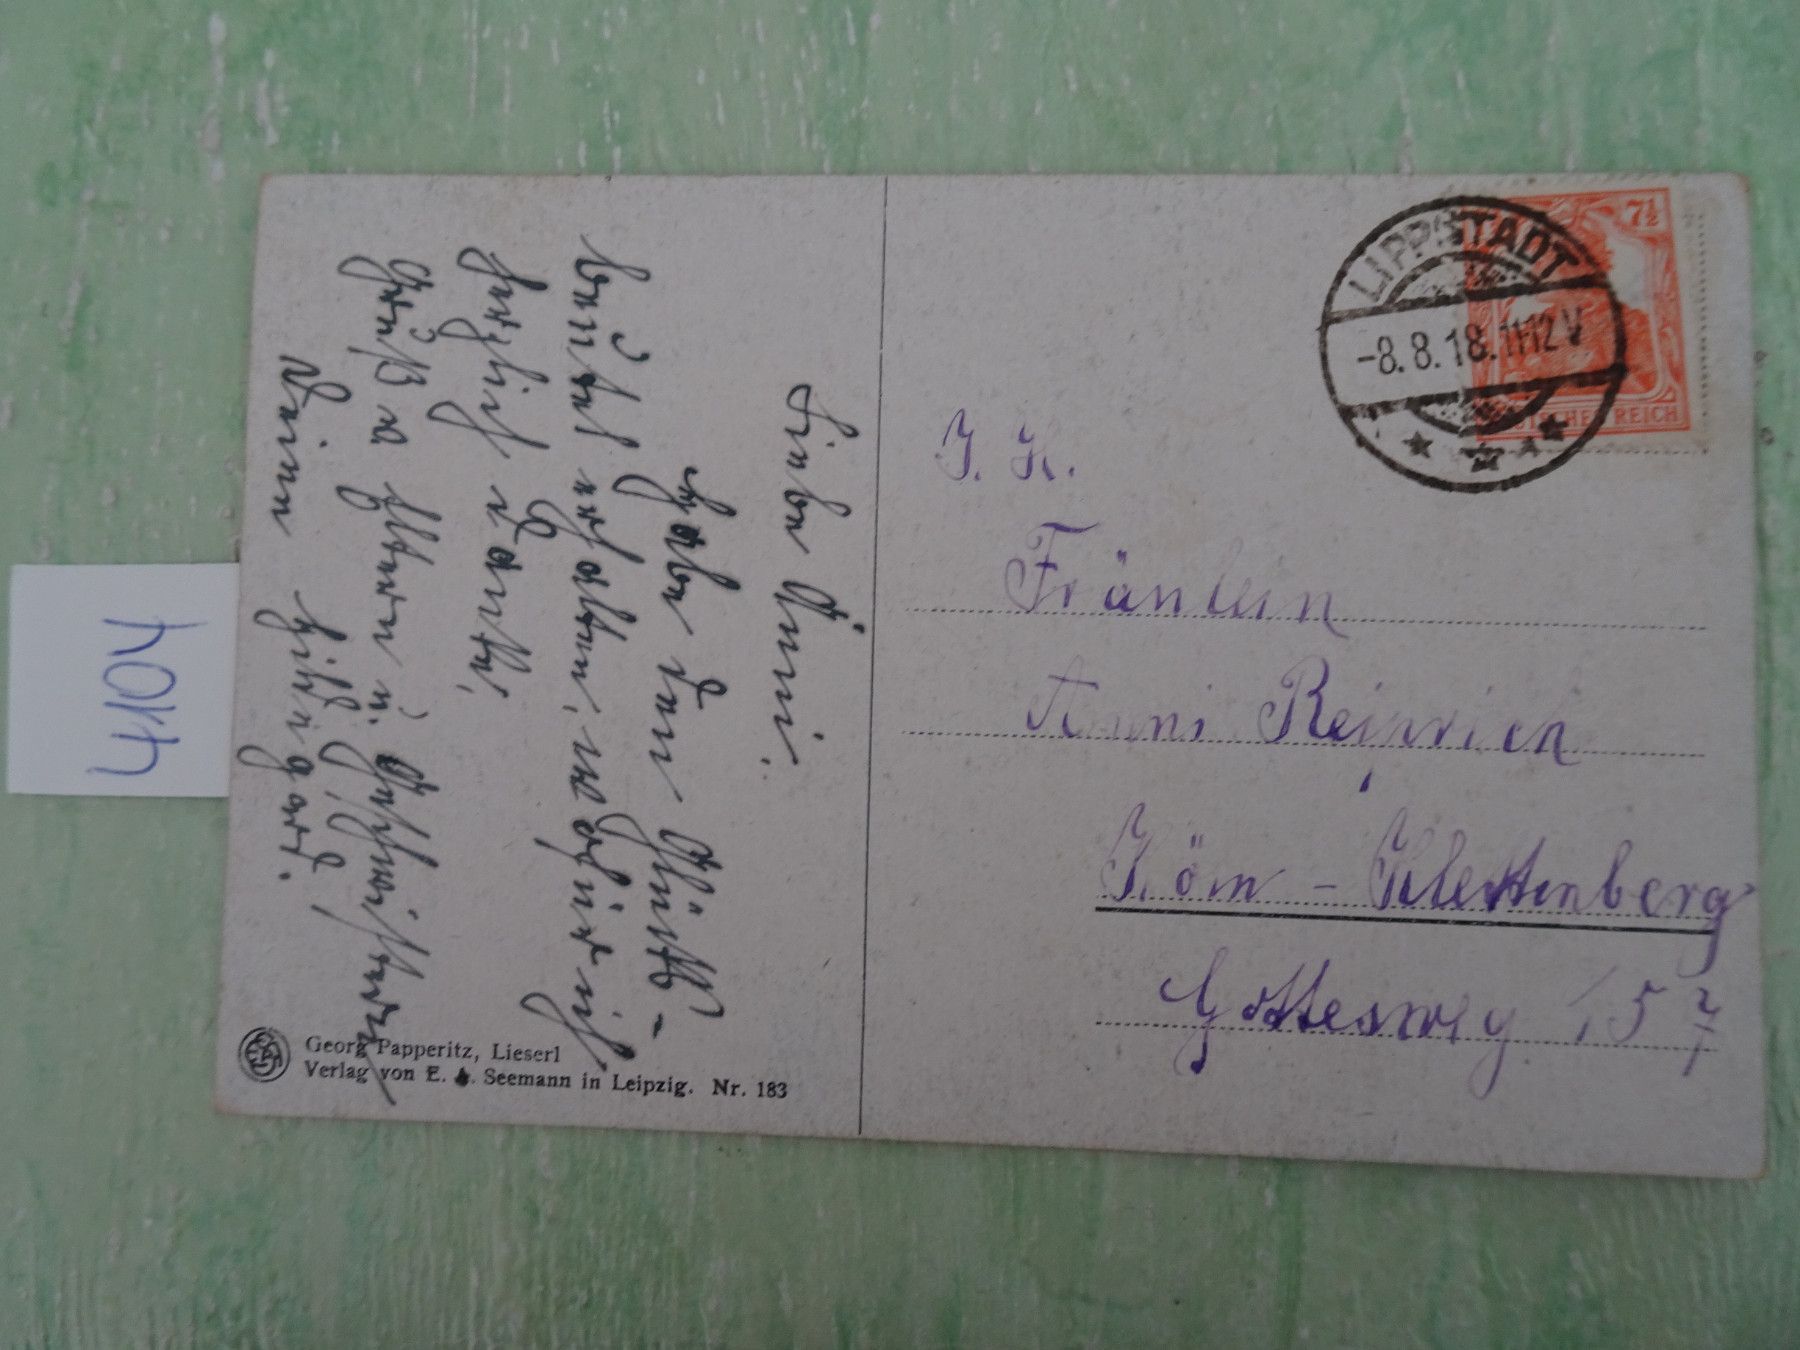 Liebe Änni!
Habe den Glück-
beutel erhalten, wofür ich
herzlich danke,
Gruß a Eltern u. Geschwistern
Deine Hildegard.
Georg Papperitz, Lieserl
Verlag von E. A. Seemann in Leipzig. Nr. 183
LIPPSTADT
-8.8.18.11-12V
7½
DEUTSCHES REICH
Fräulein
Änni
Köln - Klettenberg
Gottesweg 157
4104